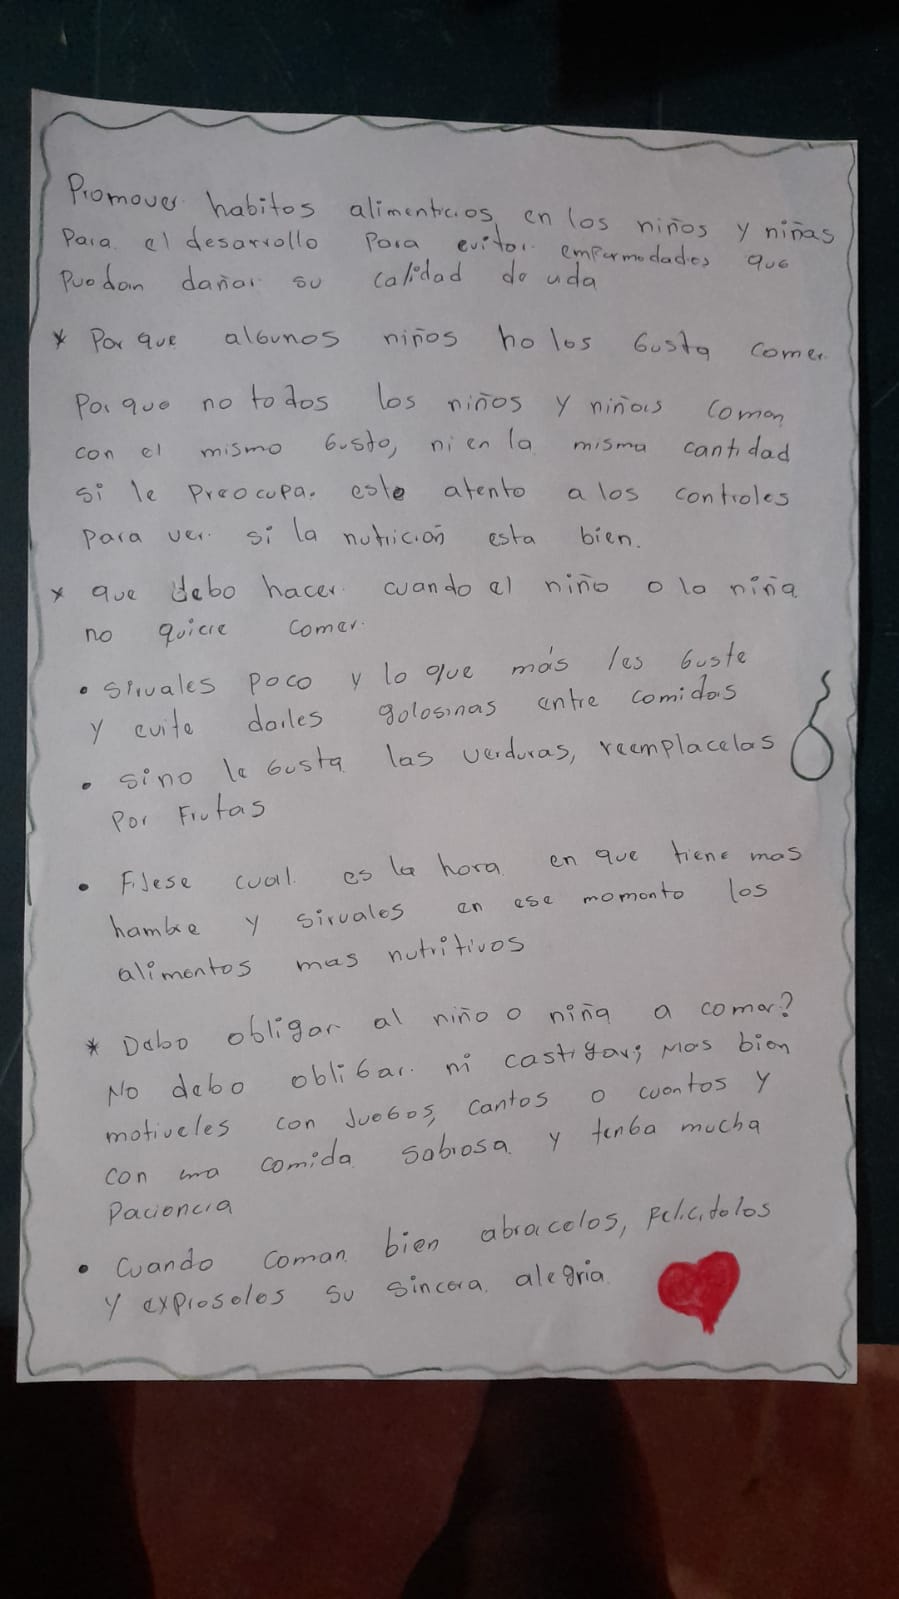 Promover habitos alimenticios en los niños y niñas
Para el desarrollo Para evitar empermedades que
Puedan dañar su calidad de uda
* Por que algunos niños no los Gusta comer
Por que no todos los niños y niñas comen
con el mismo Gusto, ni en la misma cantidad
si le Preocupa. este atento a los controles
Para ver si la nutricion esta bien.
* que debo hacer cuando el niño o la niña
no quiere comer.
• sirvales poco y lo que más les Guste
y evite darles golosinas entre comidas
• sino le Gusta las verduras, reemplacelas
Por Frutas
• Fijese cual es la hora en que tiene mas
hambre y sirvales en ese momento los
alimentos mas nutritivos
* Debo obligar al niño o niña a comer?
No debo obliGar ni castigar; Mas bien
motiveles con JueGos, cantos o cuentos y
con una comida sabrosa y tenGa mucha
Paciencia
• Cuando coman bien abracelos, Felicitelos
y expreseles su sincera alegria